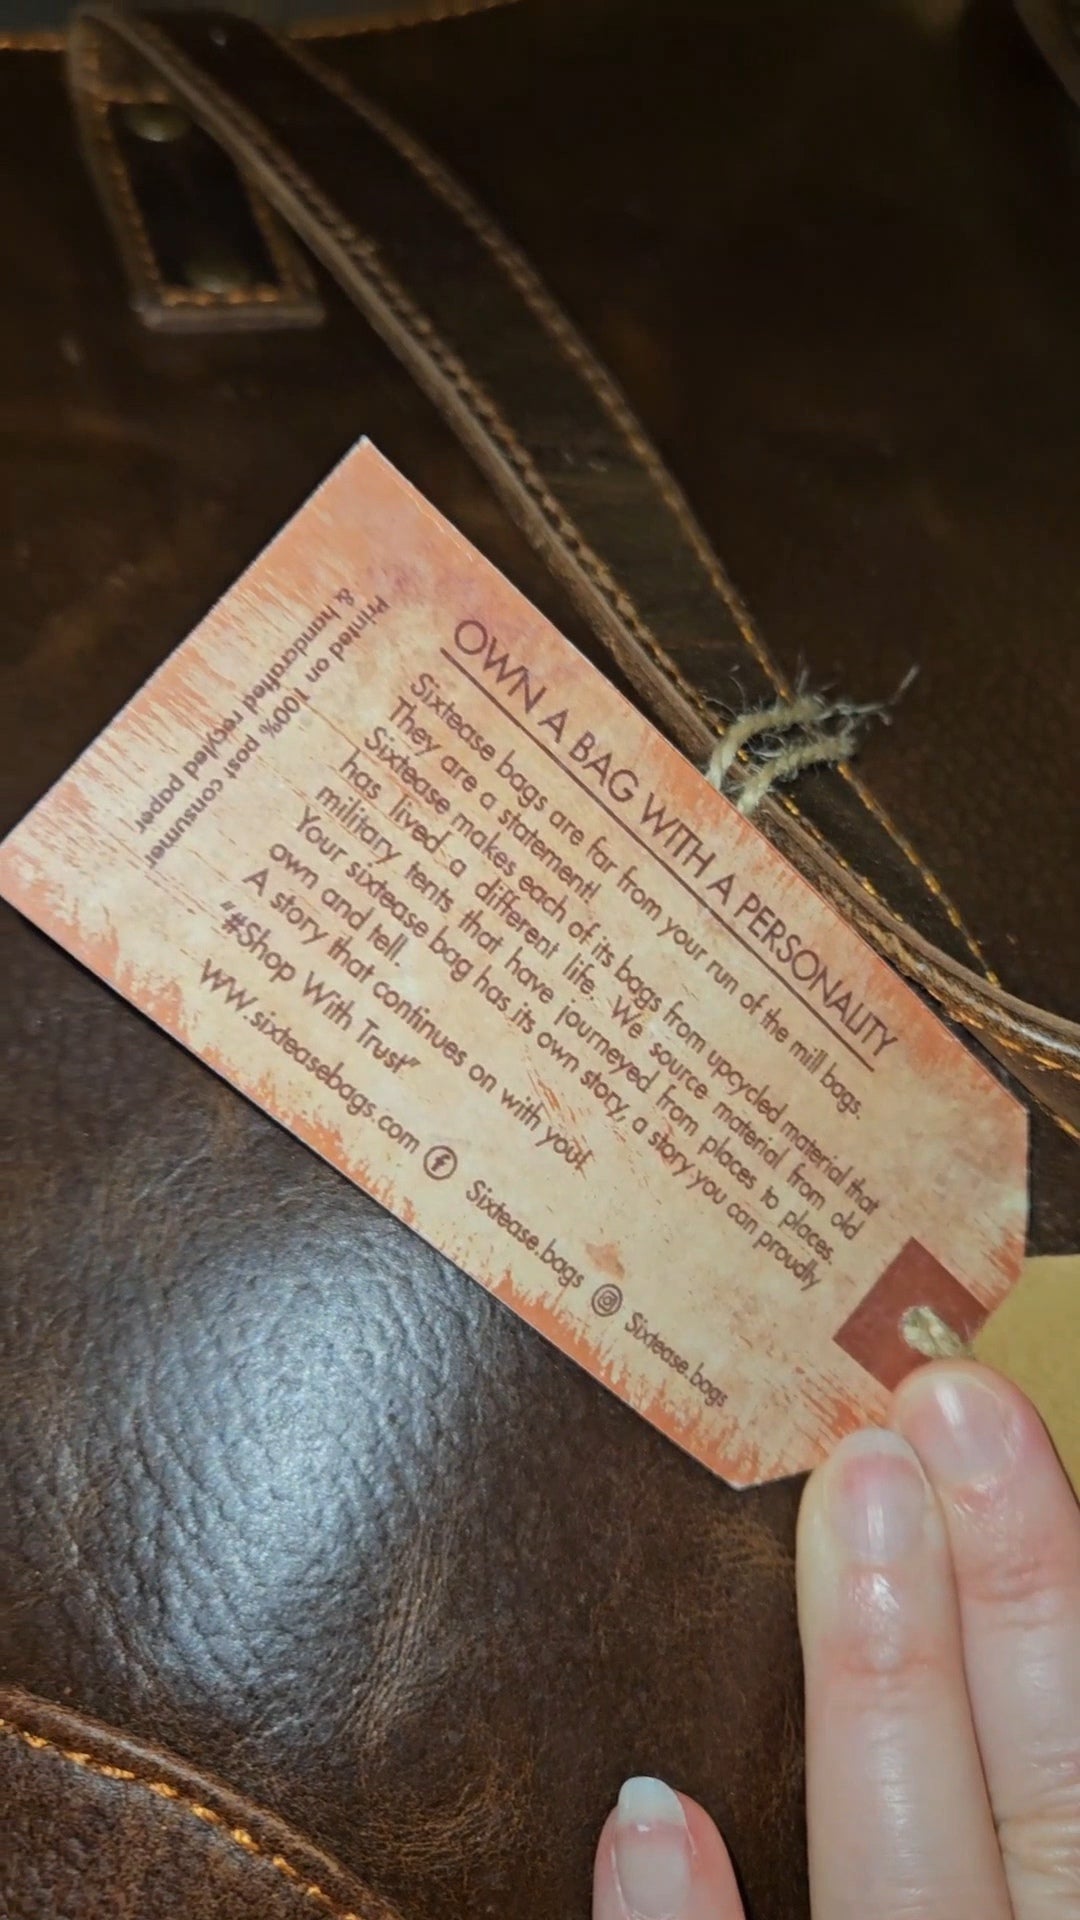 OWN A BAG WITH A PERSONALITY
Sixtease bags are far from your run of the mill bags.
They are a statement!
Sixtease makes each of its bags from upcycled material that
has lived a different life. We source material from old
military tents that have journeyed from places to places.
Your sixtease bag has its own story, a story you can proudly
own and tell.
A story that continues on with you!
"#Shop With Trust"
WW.sixteasebags.com Sixtease.bags Sixtease.bags
Printed on 100% post consumer
& handcrafted recycled paper